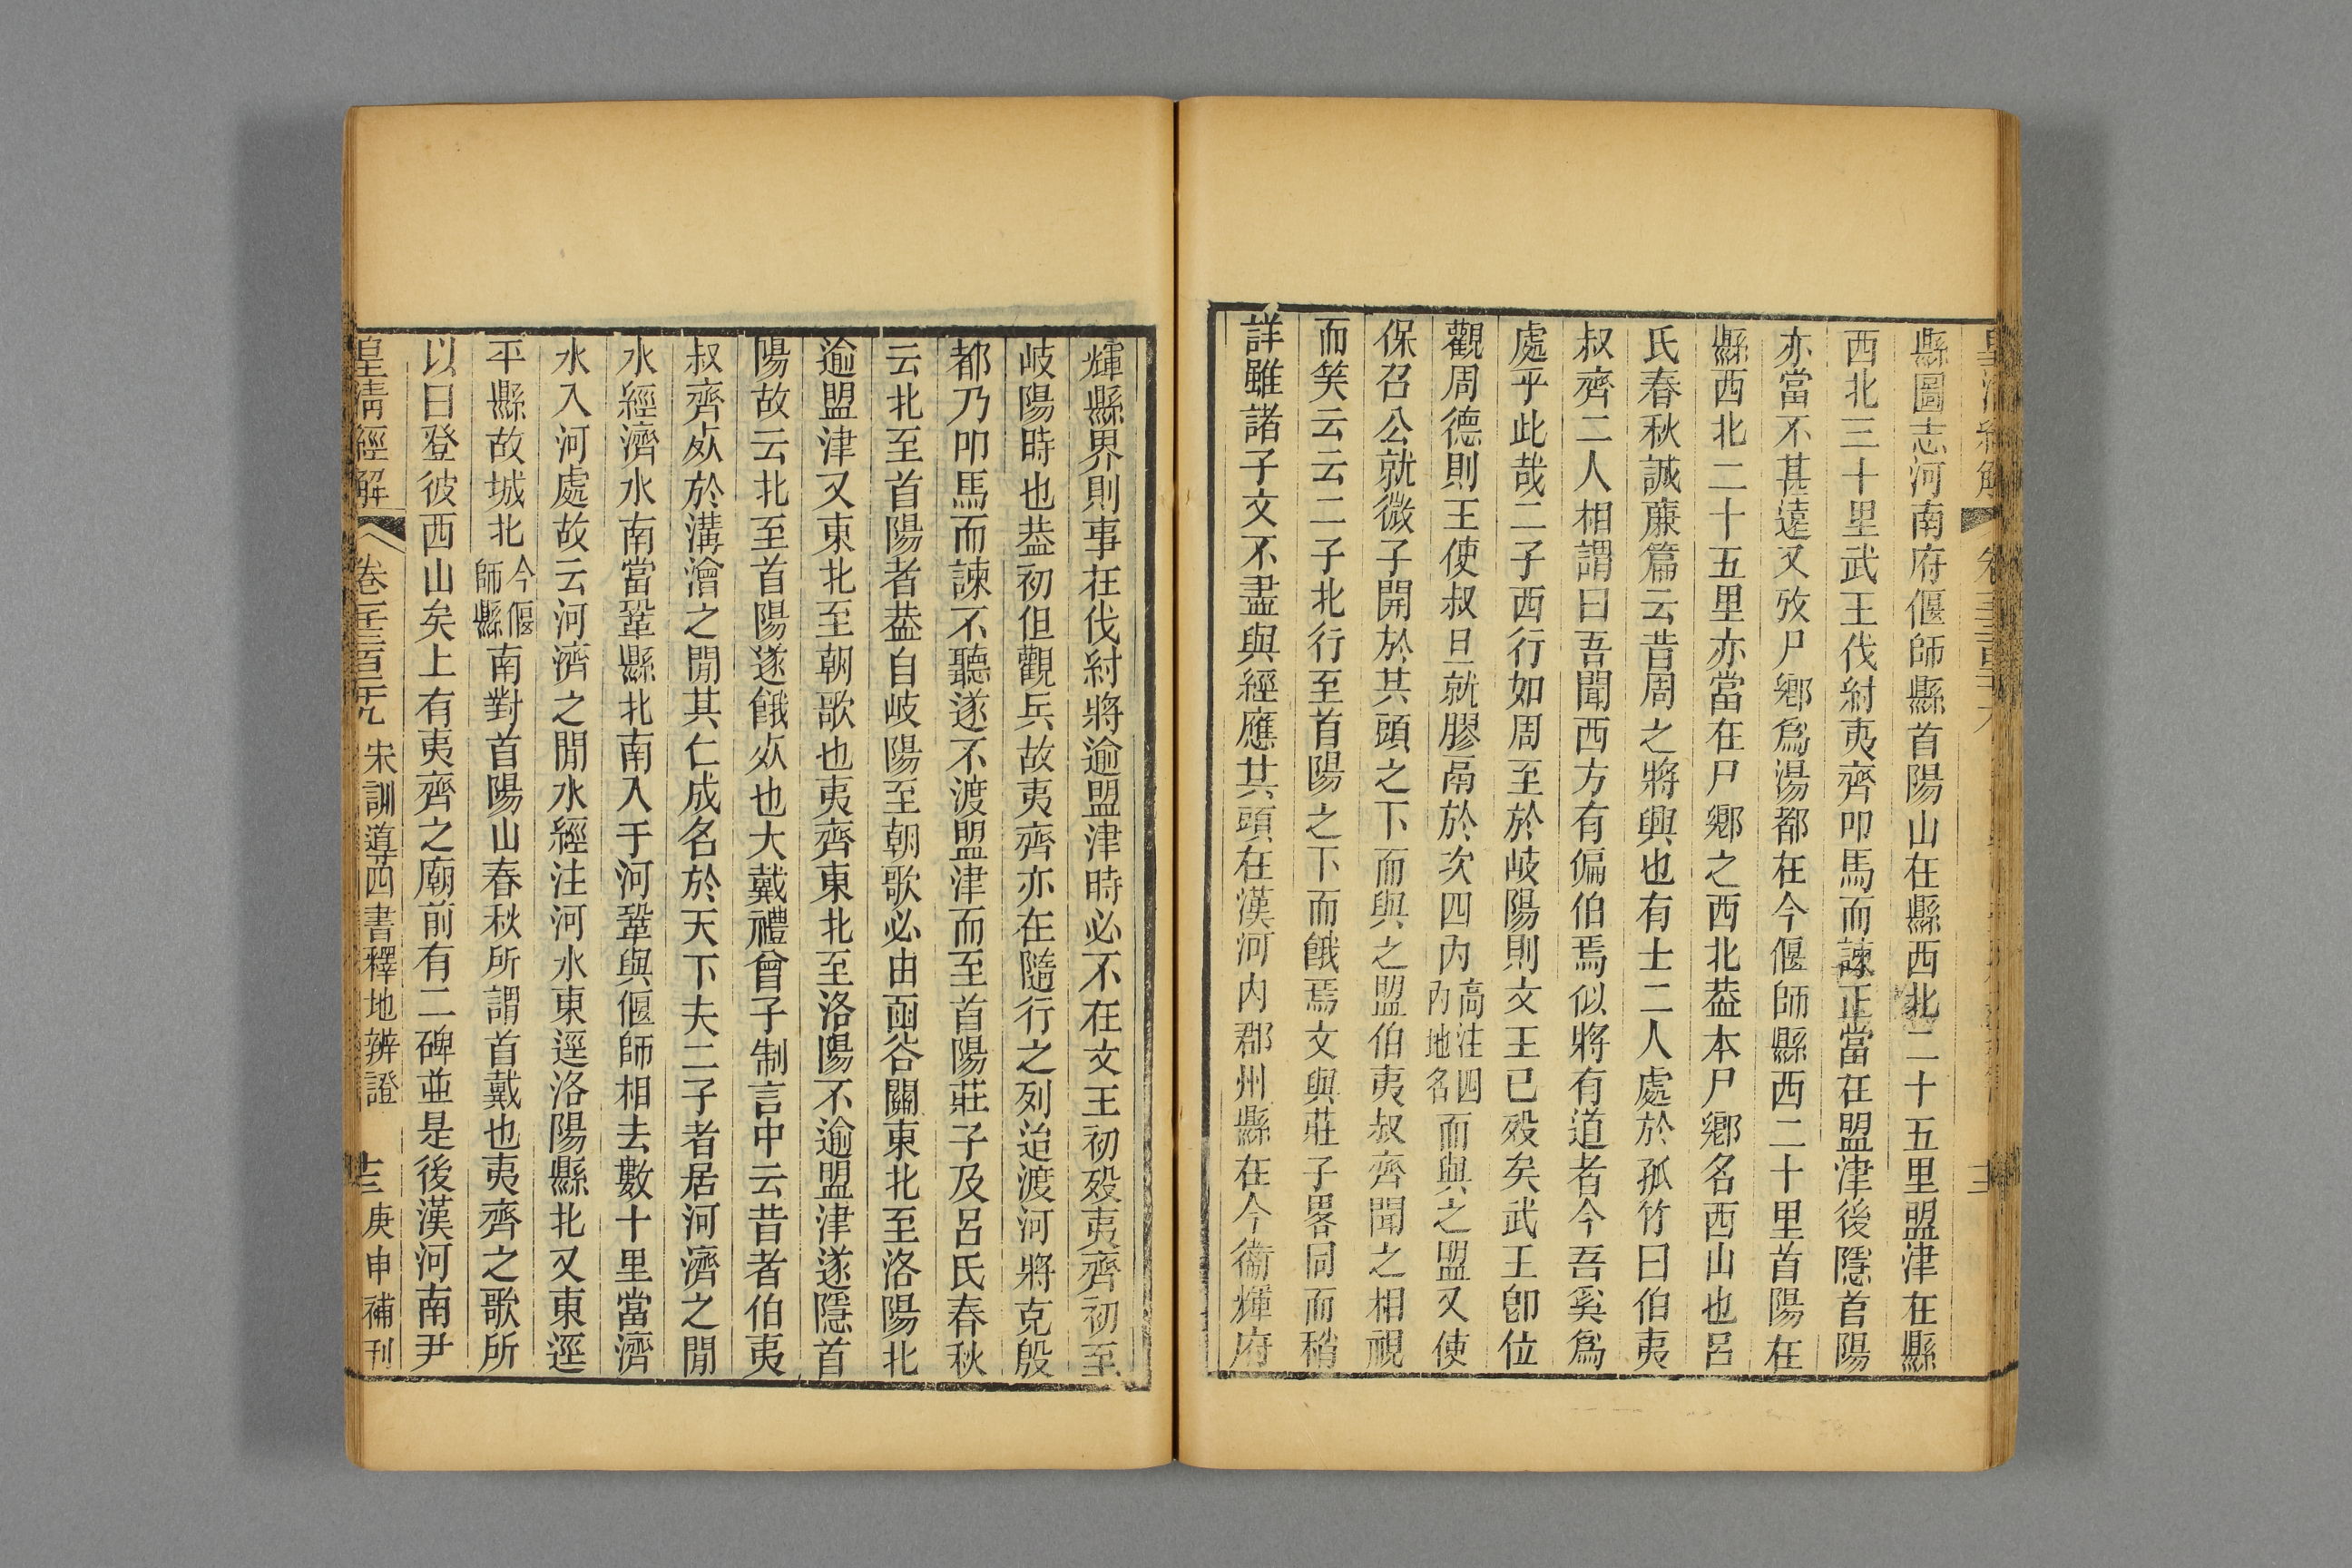 縣圖志河南府偃師縣首陽山在縣西北二十五里盟津在縣
西北三十里武王伐紂夷齊叩馬而諫正當在盟津後隱首陽
亦當不甚遠又攷尸鄉爲湯都在今偃師縣西二十里首陽在
縣西北二十五里亦當在尸鄉之西北葢本尸鄉名西山也呂
氏春秋誠廉篇云昔周之將興也有士二人處於孤竹曰伯夷
叔齊二人相謂曰吾聞西方有偏伯焉似將有道者今吾奚爲
處乎此哉二子西行如周至於岐陽則文王已歿矣武王卽位
觀周德則王使叔旦就膠鬲於次四內高注四內地名而與之盟又使
保召公就微子開於共頭之下而與之盟伯夷叔齊聞之相視
而笑云云二子北行至首陽之下而餓焉文與莊子畧同而稍
詳雖諸子文不盡與經應共頭在漢河內郡州縣在今衞輝府
輝縣界則事在伐紂將逾盟津時必不在文王初歿夷齊初至
岐陽時也葢初但觀兵故夷齊亦在隨行之列迨渡河將克殷
都乃叩馬而諫不聽遂不渡盟津而至首陽莊子及呂氏春秋
云北至首陽者葢自岐陽至朝歌必由函谷關東北至洛陽北
逾盟津又東北至朝歌也夷齊東北至洛陽不逾盟津遂隱首
陽故云北至首陽遂餓𣦸也大戴禮曾子制言中云昔者伯夷
叔齊𣦸於溝澮之閒其仁成名於天下夫二子者居河濟之閒
水經濟水南當鞏縣北南入于河鞏與偃師相去數十里當濟
水入河處故云河濟之閒水經注河水東逕洛陽縣北又東逕
平縣故城北今偃師縣南對首陽山春秋所謂首戴也夷齊之歌所
以曰登彼西山矣上有夷齊之廟前有二碑並是後漢河南尹
皇清經解 卷 宋訓道四書釋地辨證 十三 庚申補刊